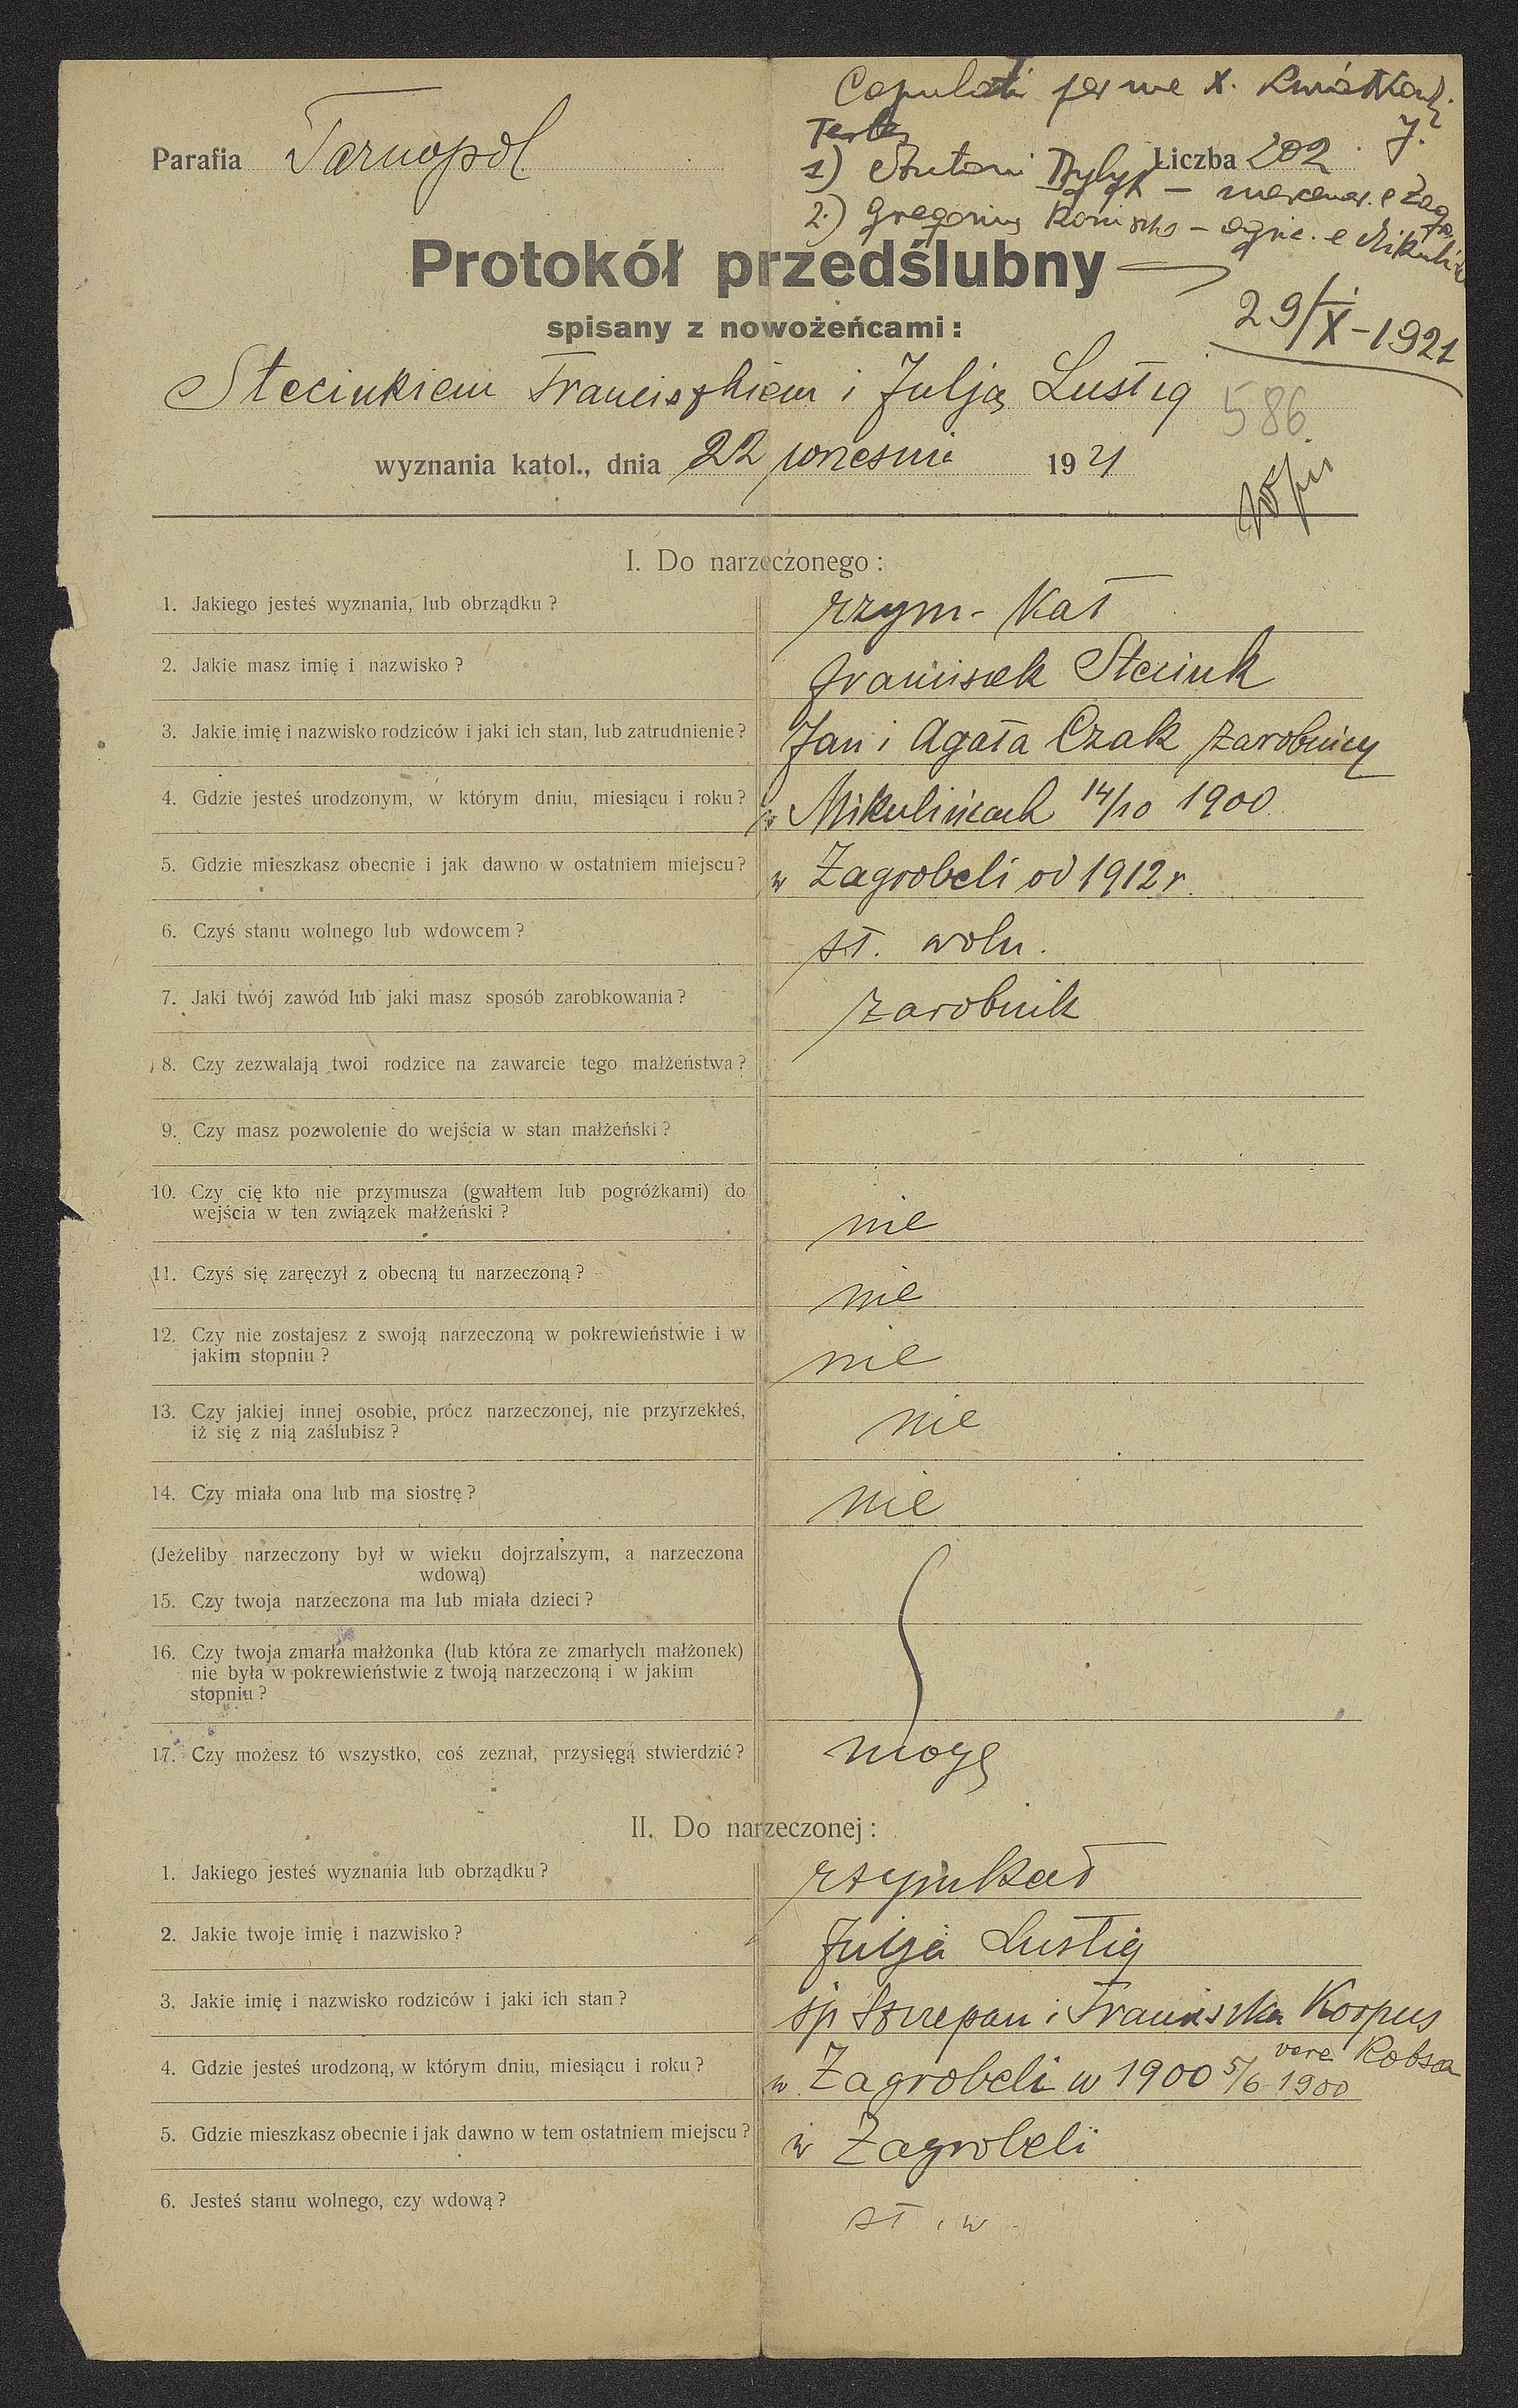 Copulati per me X.
Testes
Parafia Tarnopol Liczba 202
1) Antoni
2) Gregorius
Protokół przedślubny
29/IX-1921
spisany z nowożeńcami:
Steciukiem Franciszkiem i Julją Lustig
586
wyznania katol., dnia 22 wrzesnia 1921
I. Do narzeczonego:
1. Jakiego jesteś wyznania, lub obrządku? rzym-kat
2. Jakie masz imię i nazwisko? Franciszek Steciuk
3. Jakie imię i nazwisko rodziców i jaki ich stan, lub zatrudnienie? Jan i Agata Czak zarobnicy
4. Gdzie jesteś urodzonym, w którym dniu, miesiącu i roku? w Mikulińcach 14/10 1900
5. Gdzie mieszkasz obecnie i jak dawno w ostatniem miejscu? w Zagrobeli od 1912 r.
6. Czyś stanu wolnego lub wdowcem? st. woln.
7. Jaki twój zawód lub jaki masz sposób zarobkowania? zarobnik
8. Czy zezwalają twoi rodzice na zawarcie tego małżeństwa?
9. Czy masz pozwolenie do wejścia w stan małżeński?
10. Czy cię kto nie przymusza (gwałtem lub pogróżkami) do
wejścia w ten związek małżeński? nie
11. Czyś się zaręczył z obecną tu narzeczoną? nie
12. Czy nie zostajesz z swoją narzeczoną w pokrewieństwie i w
jakim stopniu? nie
13. Czy jakiej innej osobie, prócz narzeczonej, nie przyrzekłeś,
iż się z nią zaślubisz? nie
14. Czy miała ona lub ma siostrę? nie
(Jeżeliby narzeczony był w wieku dojrzalszym, a narzeczona
wdową)
15. Czy twoja narzeczona ma lub miała dzieci?
16. Czy twoja zmarła małżonka (lub która ze zmarłych małżonek)
nie była w pokrewieństwie z twoją narzeczoną i w jakim
stopniu?
17. Czy możesz to wszystko, coś zeznał, przysięgą stwierdzić? mogę
II. Do narzeczonej:
1. Jakiego jesteś wyznania lub obrządku? rzymkat
2. Jakie twoje imię i nazwisko? Julja Lustig
3. Jakie imię i nazwisko rodziców i jaki ich stan? śp Szczepan i Franciszka Korpus
vere Kobza
4. Gdzie jesteś urodzoną, w którym dniu, miesiącu i roku? w Zagrobeli w 1900 5/6 1900
5. Gdzie mieszkasz obecnie i jak dawno w tem ostatniem miejscu? w Zagrobeli
6. Jesteś stanu wolnego, czy wdową? st. w.